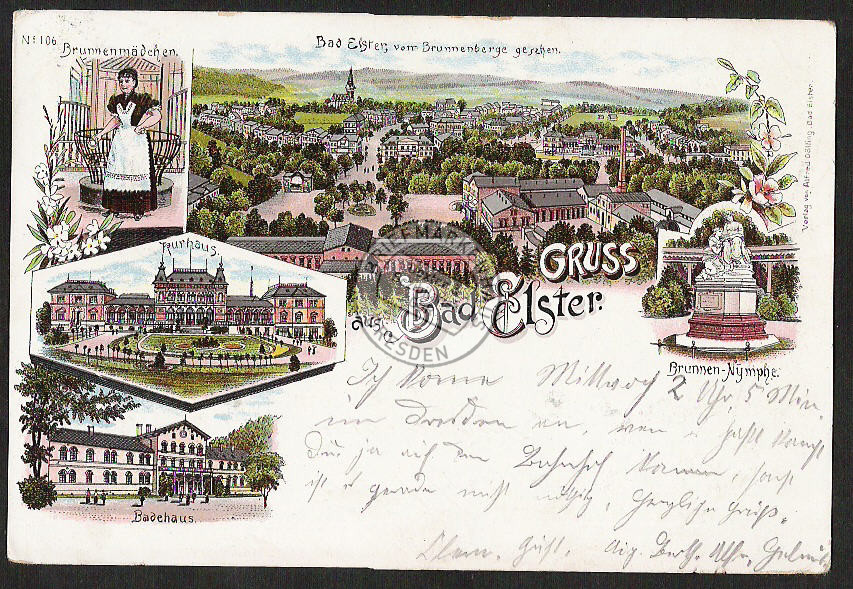 No 106
Brunnenmädchen.
Bad Elster, vom Brunnenberge gesehen.
Verlag von Alfred Bölling, Bad Elster.
Kurhaus.
GRUSS
aus
Bad Elster.
Brunnen-Nymphe.
Badehaus.
DRESDEN
Ich komme Mittwoch 2 Uhr, 5 Min.
in Dresden an, wenn
Du ja auf den Bahnhof kommen, sonst
ist es gerade nicht nötig, Herzliche Grüße.